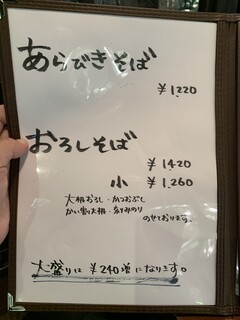 あらびきそば
¥1,220
おろしそば
¥1420
小 ¥1,260
大根おろし・かつおぶし
かい割大根・刻みのり
のせております。
大盛りは¥240増になります。